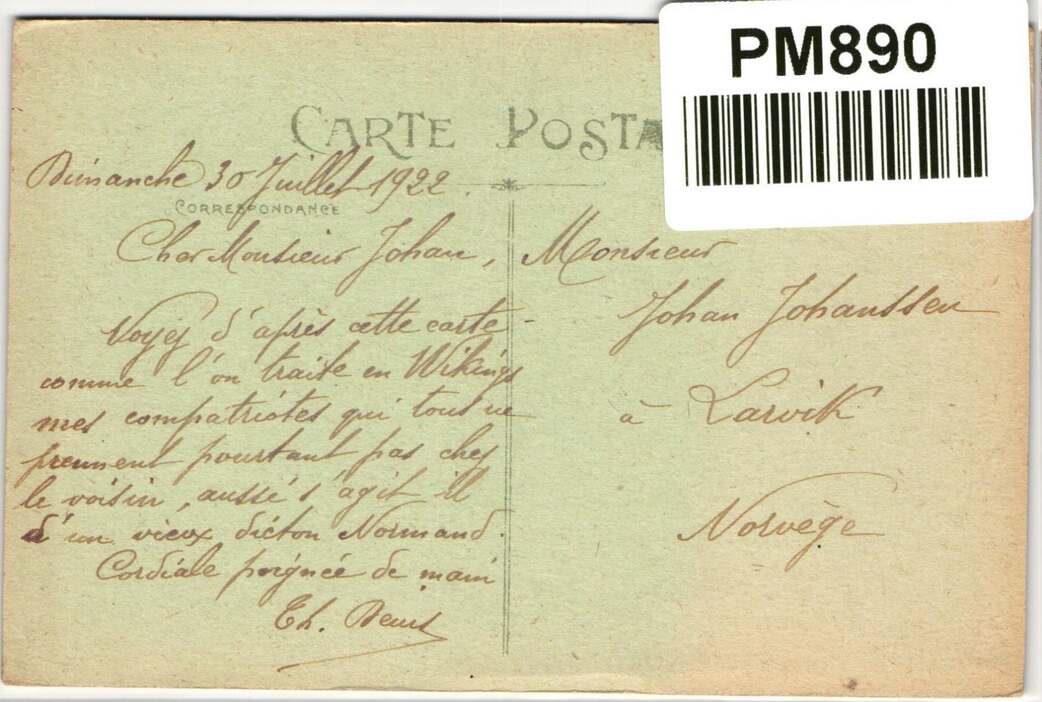 PM890
CARTE POSTA
Dimanche 30 Juillet 1922.
CORRESPONDANCE
Cher Monsieur Johan,
Voyez d'après cette carte
comme l'on traite en Wikings
mes compatriotes qui tous ne
prennent pourtant pas chez
le voisin, aussi s'agit il
d'un vieux dicton Normand.
Cordiale poignée de main
Th. Denis
Monsieur
Johan Johanssen
à Larvik
Norvège